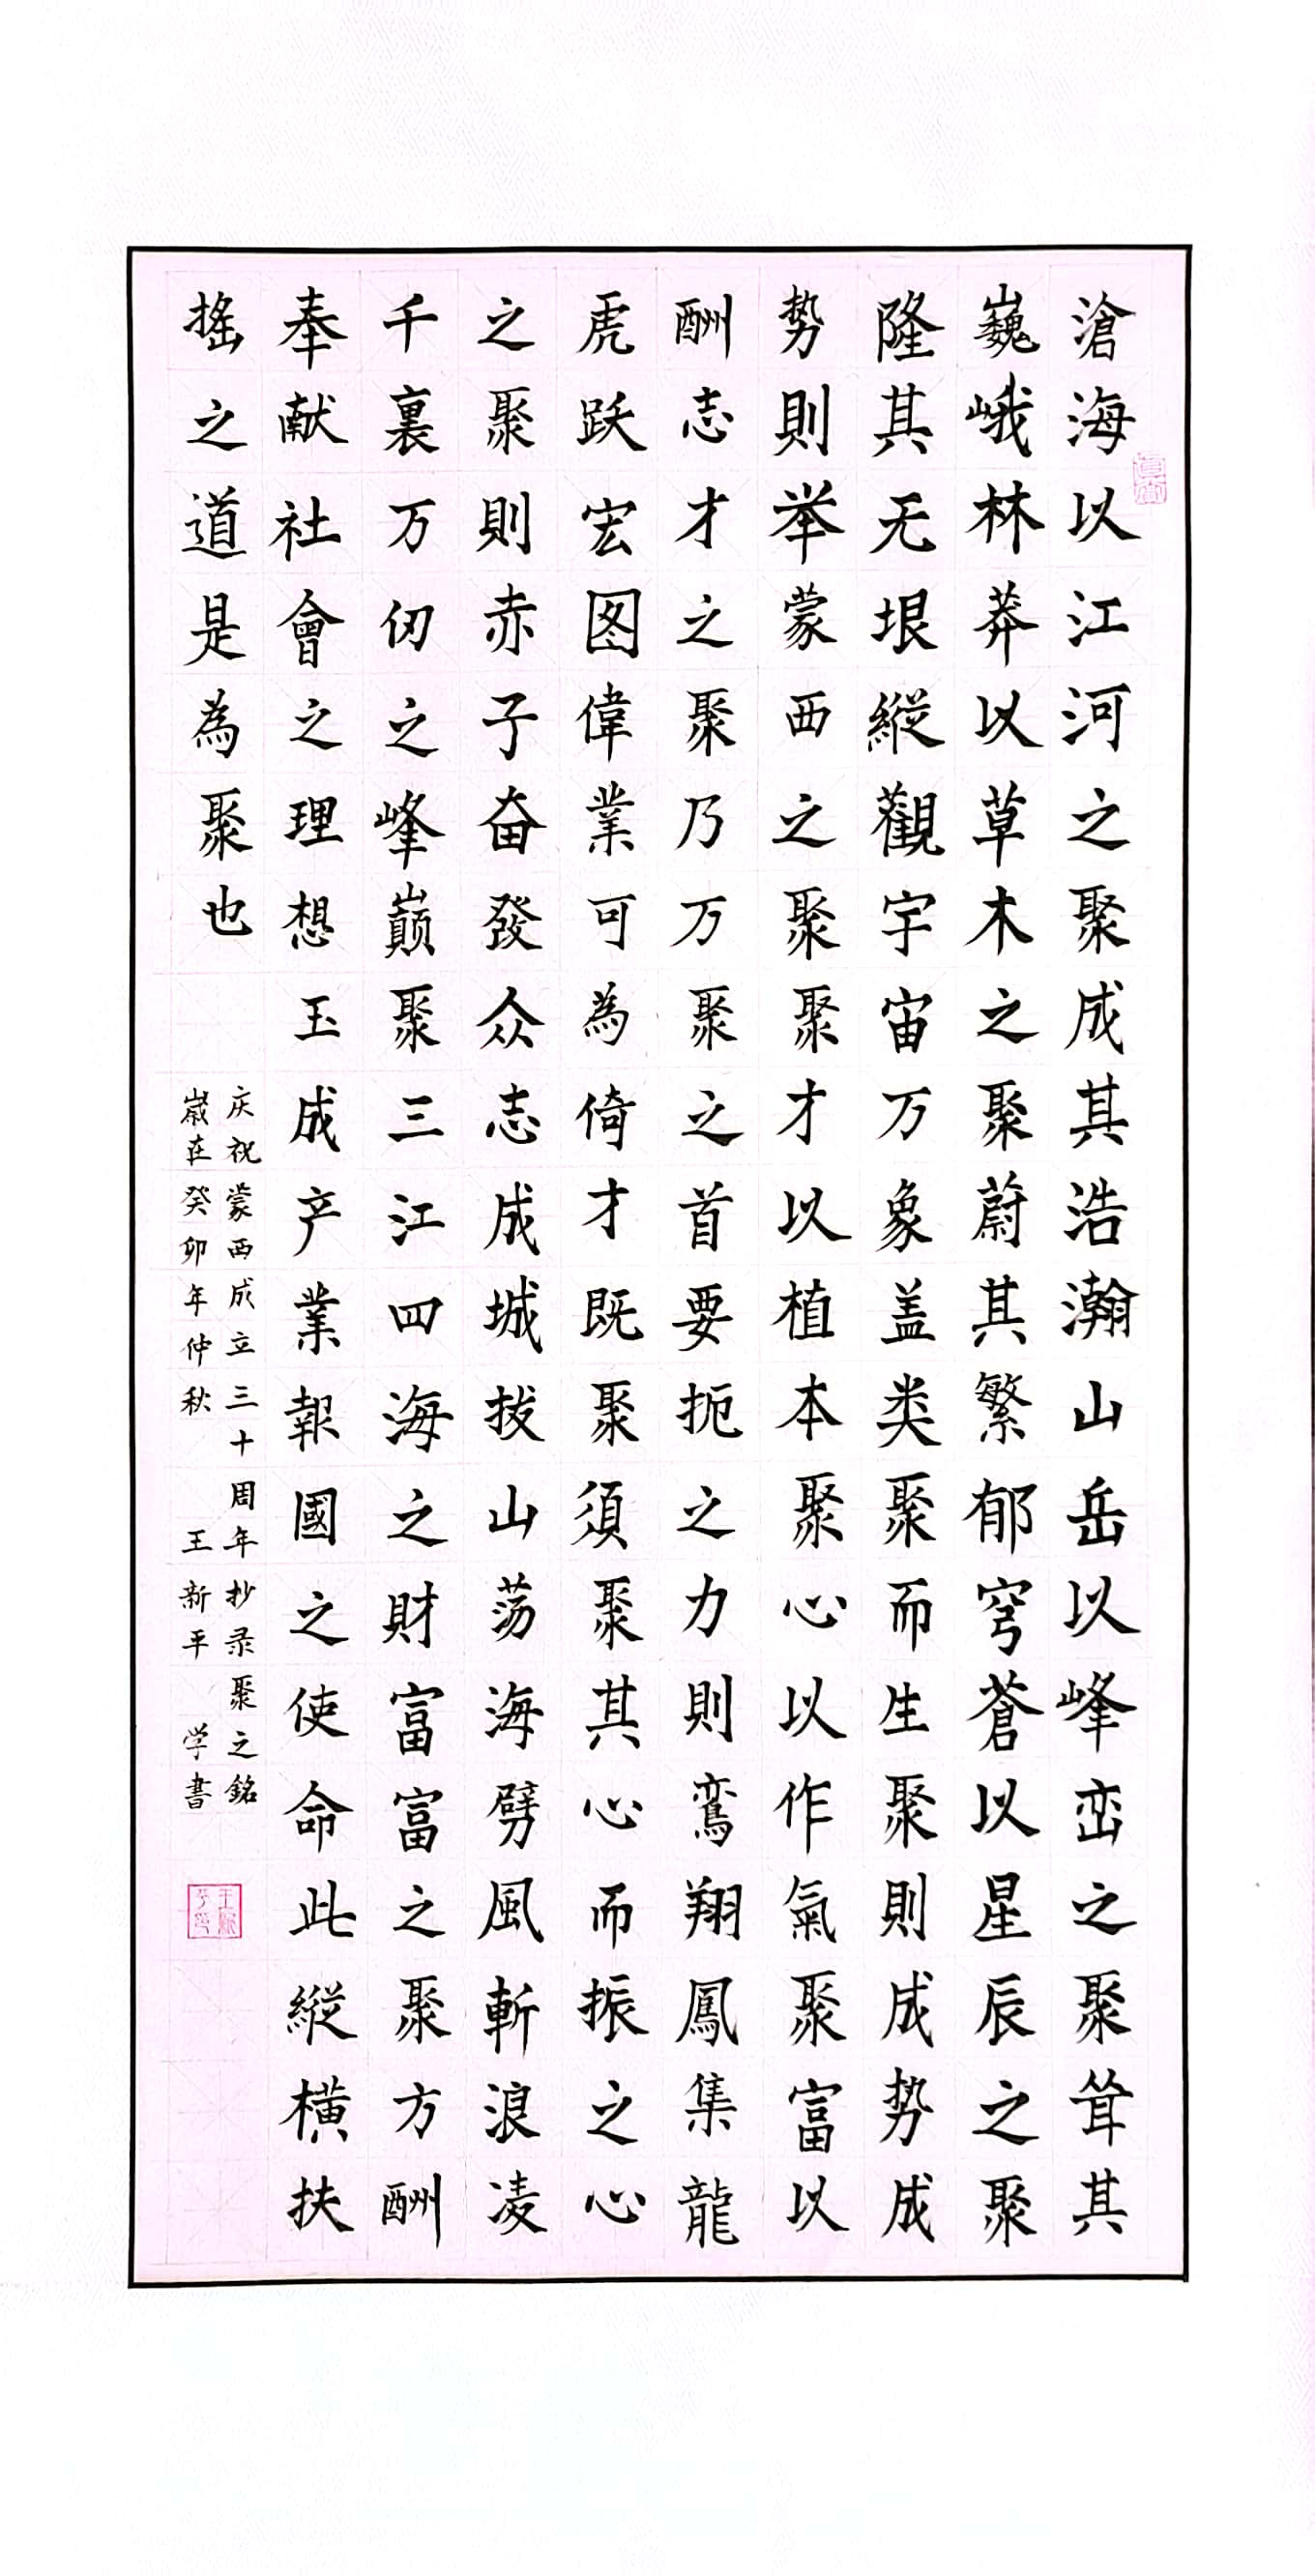 滄海以江河之聚成其浩瀚山岳以峰峦之聚耸其
巍峨林莽以草木之聚蔚其繁郁穹蒼以星辰之聚
隆其无垠縱觀宇宙万象盖类聚而生聚則成势成
势則举蒙西之聚聚才以植本聚心以作氣聚富以
酬志才之聚乃万聚之首要扼之力則鸾翔鳳集龍
虎跃宏图偉業可為倚才既聚須聚其心而振之心
之聚則赤子奋發众志成城拔山荡海劈風斬浪凌
千裏万仞之峰巅聚三江四海之財富富之聚方酬
奉献社會之理想玉成产業報國之使命此縱横扶
摇之道是為聚也
庆祝蒙西成立三十周年抄录聚之銘
嵗在癸卯年仲秋 王新平 学書